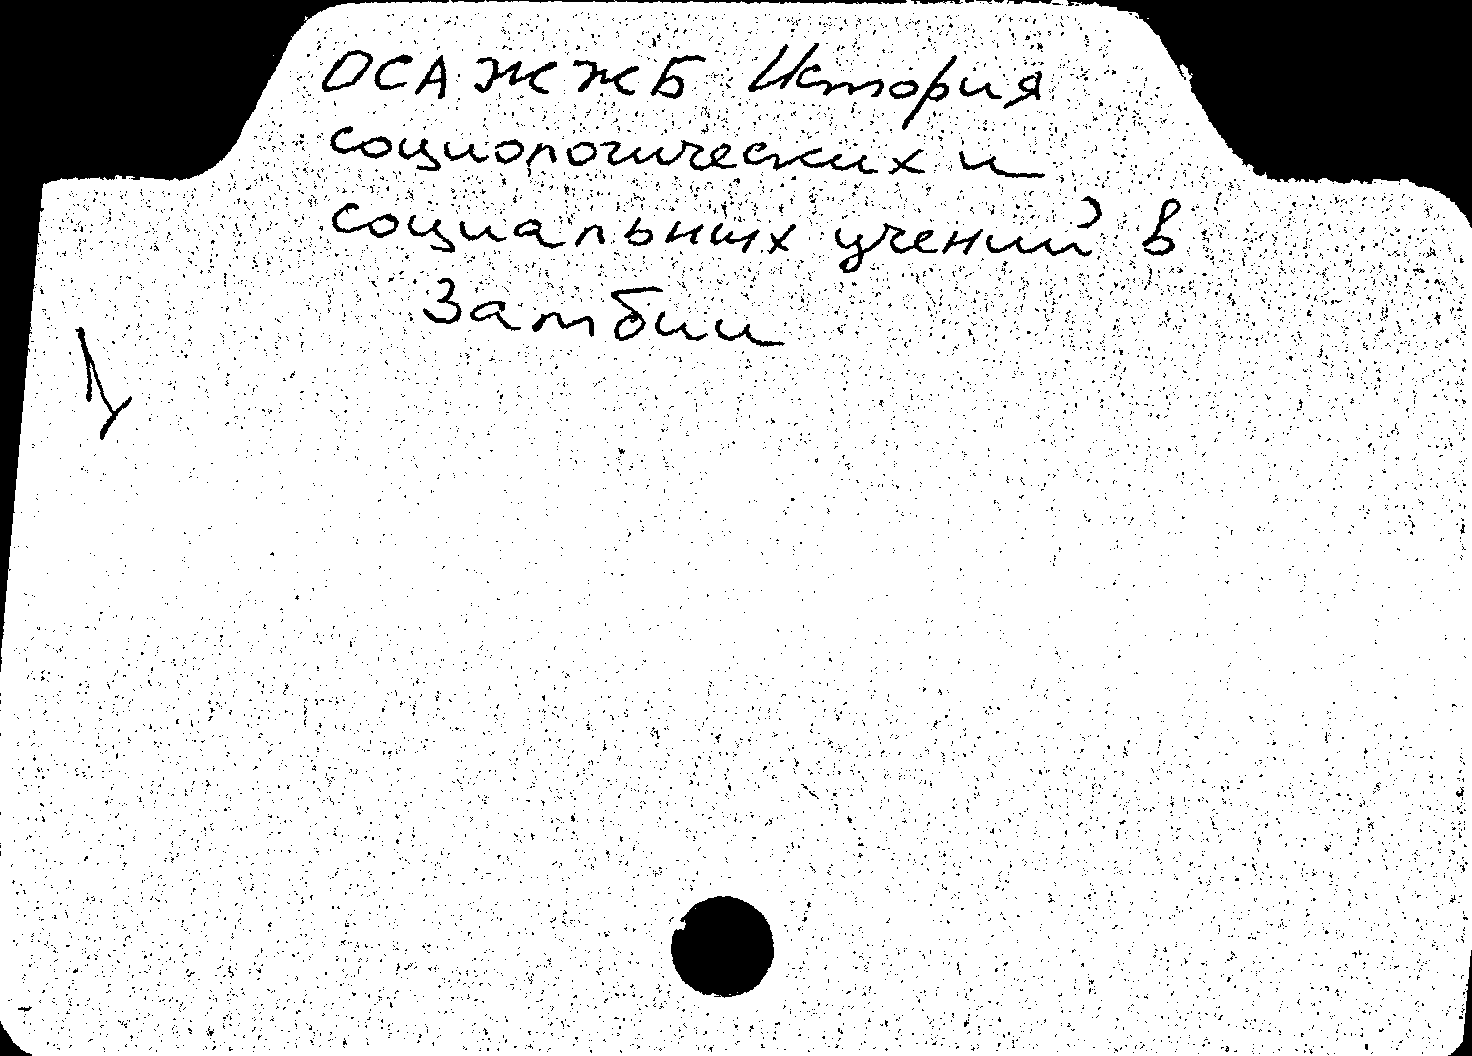 ОСАЖЖБ История
социологических и
социальных учений в
Замбии